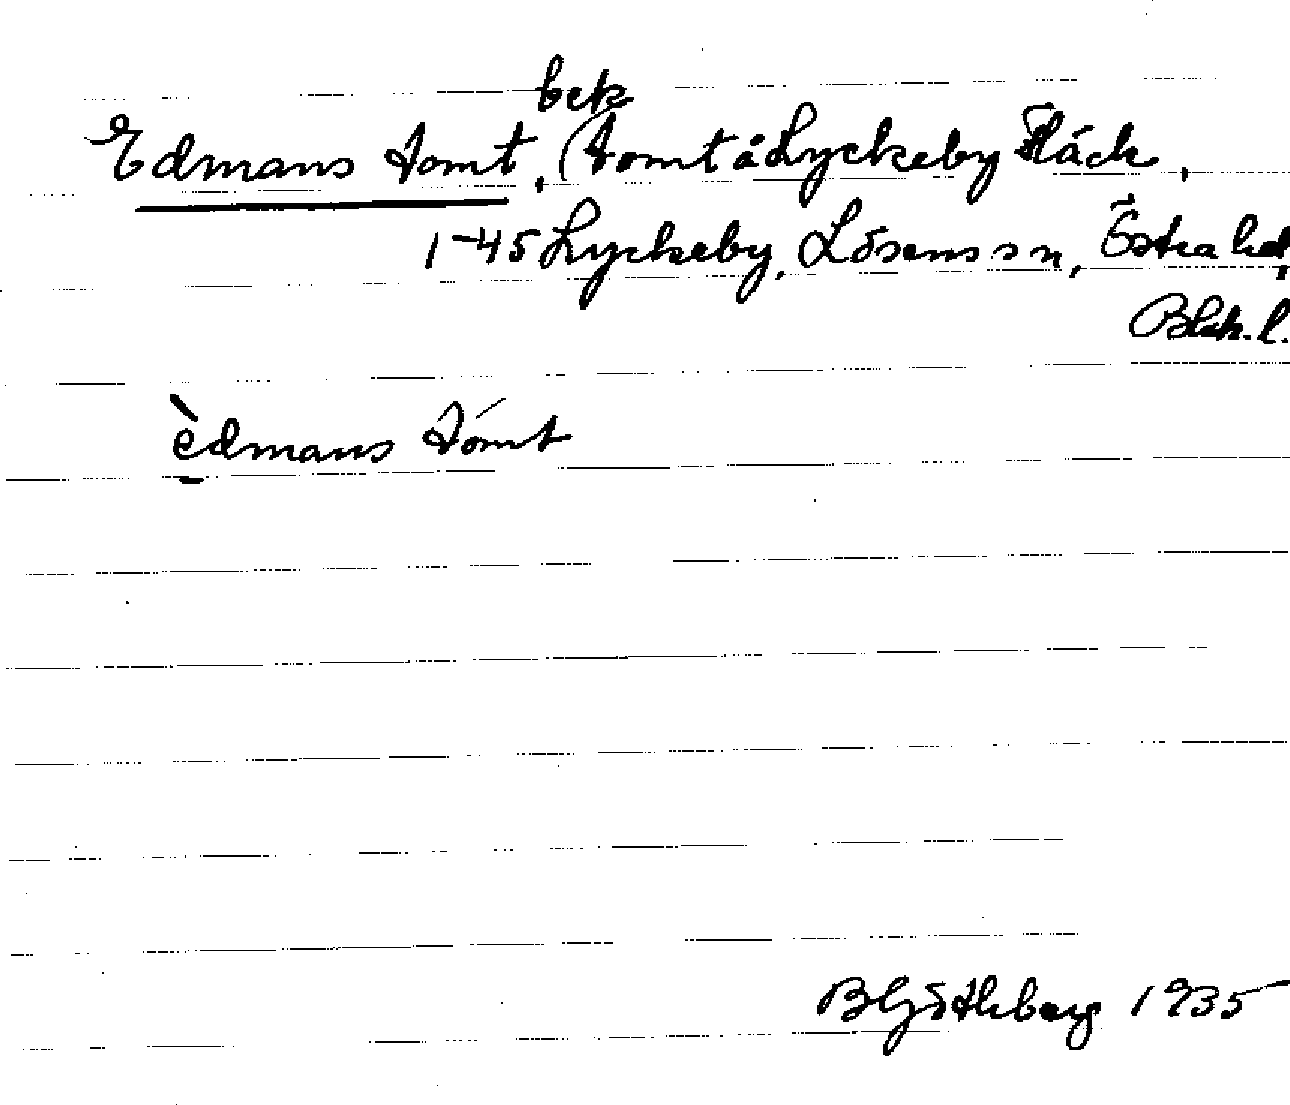 bek
Edmans tomt, (tomt å Lyckeby fläck,
1-45 Lyckeby, Lösens sn, Östra hd,
Blek. l.
èdmans tómt
B Götlsberg 1935